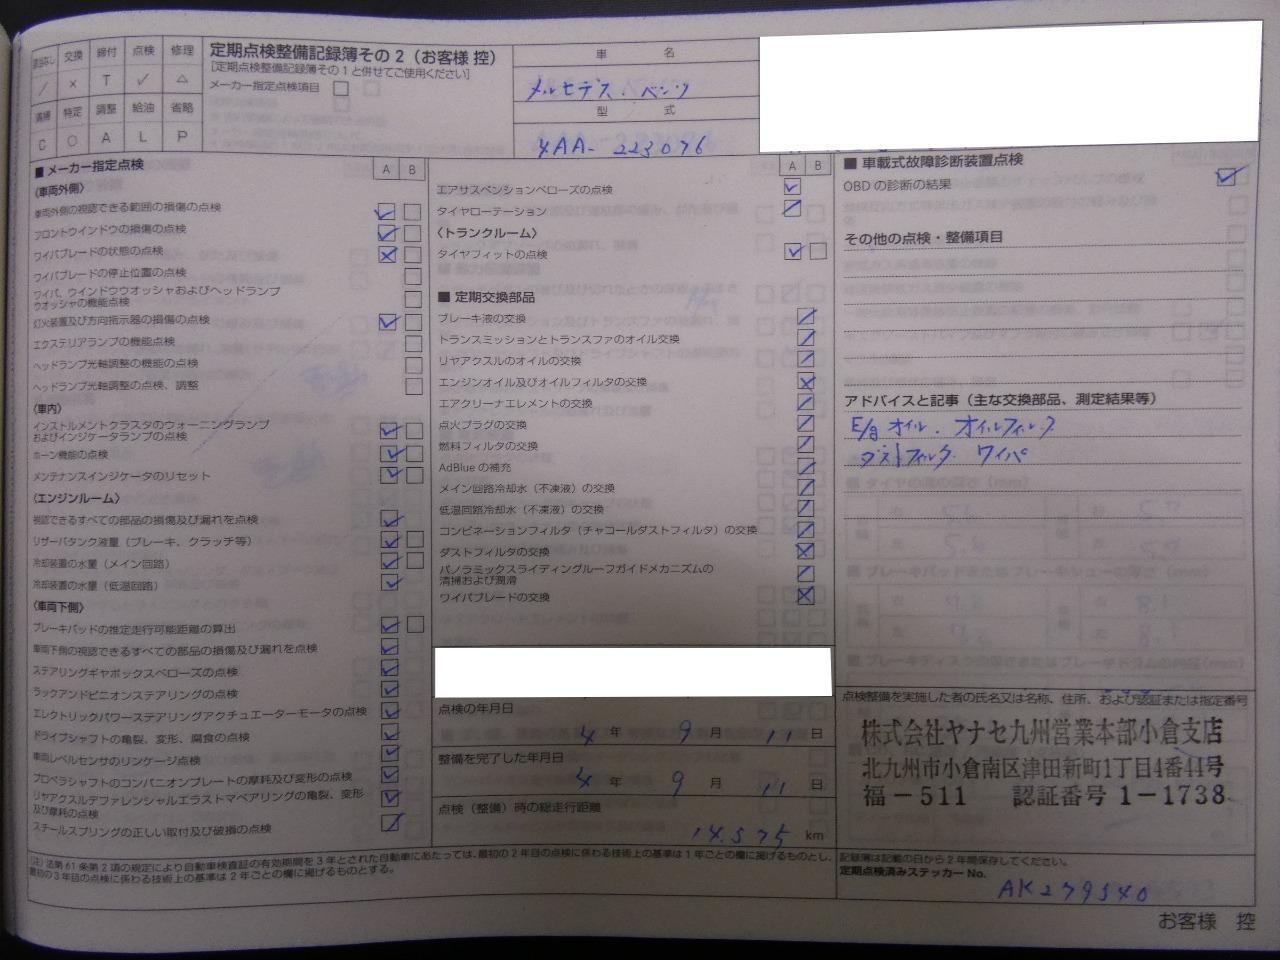 交換 締付 点検 修理
/ × T ✓ △
特定 調整 給油 省略
C ○ A L P
定期点検整備記録簿その2（お客様 控）
[定期点検整備記録簿その1と併せてご使用ください]
メーカー指定点検項目 □
車 名
メルセデス・ベンツ
型 式
4AA-223076
■ メーカー指定点検
A B
〈車両外側〉
車両外側の視認できる範囲の損傷の点検
フロントウインドウの損傷の点検
ワイパブレードの状態の点検
ワイパブレードの停止位置の点検
ワイパ、ウインドウウオッシャおよびヘッドランプ
ウオッシャの機能点検
灯火装置及び方向指示器の損傷の点検
エクステリアランプの機能点検
ヘッドランプ光軸調整の機能の点検
ヘッドランプ光軸調整の点検、調整
〈車内〉
インストルメントクラスタのウォーニングランプ
およびインジケータランプの点検
ホーン機能の点検
メンテナンスインジケータのリセット
〈エンジンルーム〉
視認できるすべての部品の損傷及び漏れを点検
リザーバタンク液量（ブレーキ、クラッチ等）
冷却装置の水量（メイン回路）
冷却装置の水量（低温回路）
〈車両下側〉
ブレーキパッドの推定走行可能距離の算出
車両下側の視認できるすべての部品の損傷及び漏れを点検
ステアリングギヤボックスベローズの点検
ラックアンドピニオンステアリングの点検
エレクトリックパワーステアリングアクチュエーターモータの点検
ドライブシャフトの亀裂、変形、腐食の点検
車両レベルセンサのリンケージ点検
プロペラシャフトのコンパニオンプレートの摩耗及び変形の点検
リヤアクスルデファレンシャルエラストマベアリングの亀裂、変形
及び摩耗の点検
スチールスプリングの正しい取付及び破損の点検
A B
エアサスペンションベローズの点検
タイヤローテーション
〈トランクルーム〉
タイヤフィットの点検
■ 定期交換部品
ブレーキ液の交換
トランスミッションとトランスファのオイル交換
リヤアクスルのオイルの交換
エンジンオイル及びオイルフィルタの交換
エアクリーナエレメントの交換
点火プラグの交換
燃料フィルタの交換
AdBlue の補充
メイン回路冷却水（不凍液）の交換
低温回路冷却水（不凍液）の交換
コンビネーションフィルタ（チャコールダストフィルタ）の交換
ダストフィルタの交換
パノラミックスライディングルーフガイドメカニズムの
清掃および潤滑
ワイパブレードの交換
点検の年月日
4 年 9 月 11 日
整備を完了した年月日
4 年 9 月 11 日
点検（整備）時の総走行距離
14.575 km
■ 車載式故障診断装置点検
OBD の診断の結果
その他の点検・整備項目
アドバイスと記事（主な交換部品、測定結果等）
E/g オイル. オイルフィルタ
ダストフィルタ ワイパ
点検整備を実施した者の氏名又は名称、住所、および認証または指定番号
株式会社ヤナセ九州営業本部小倉支店
北九州市小倉南区津田新町1丁目4番44号
福－511 認証番号 1－1738
(注) 法第61条第2項の規定により自動車検査証の有効期間を3年とされた自動車にあたっては、最初の2年目の点検に係わる技術上の基準は1年ごとの欄に掲げるものとし、
最初の3年目の点検に係わる技術上の基準は2年ごとの欄に掲げるものとする。
記録簿は記載の日から2年間保存してください。
定期点検済みステッカー No.
AK279540
お客様 控